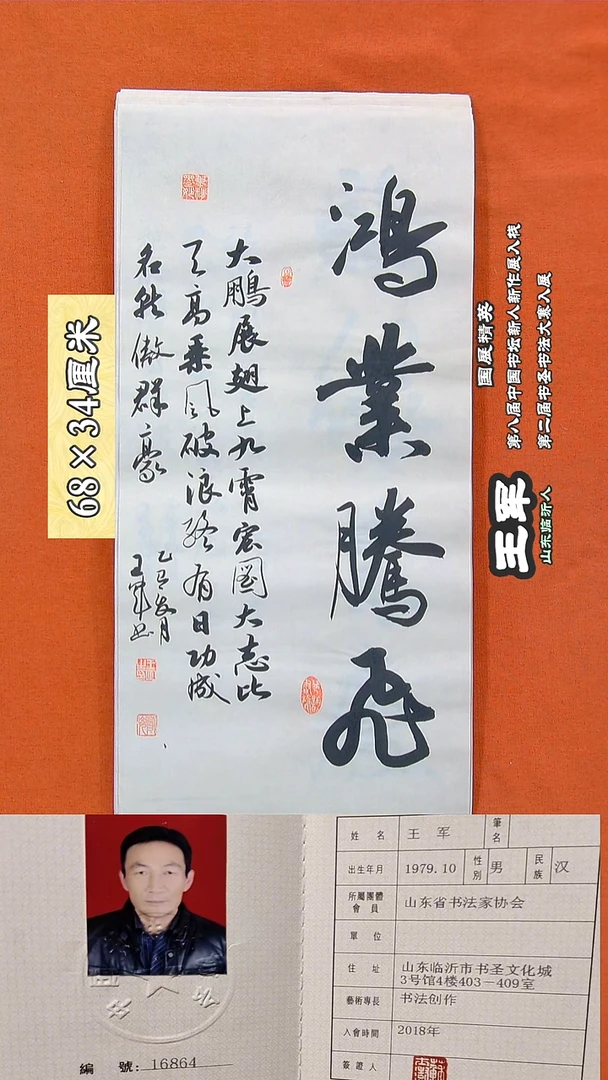 鸿业腾飞
大鹏展翅上九霄宏图大志比
天高乘风破浪终有日功成
名就傲群豪
乙巳岁月
王军书
68×34厘米
国展精英
第八届中国书坛新人新作展入展
第二届书圣书法大赛入展
王军
山东临沂人
姓名 王军 筆名
出生年月 1979.10 性別 男 民族 汉
所屬團體會員 山东省书法家协会
單位
住址 山东临沂市书圣文化城
3号馆4楼403-409室
藝術專長 书法创作
入會時間 2018年
簽證人
編號: 16864